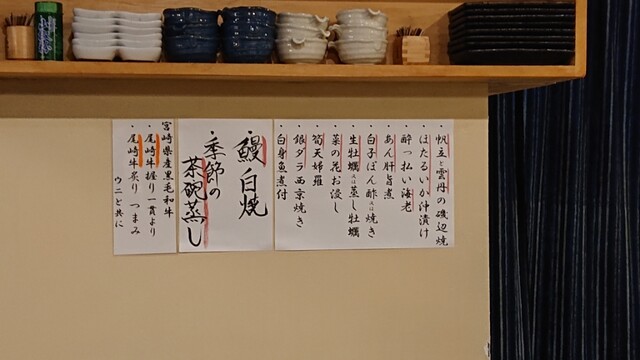 ・帆立と雲丹の磯辺焼
・ほたるいか沖漬け
・酔っ払い海老
・あん肝旨煮
・白子ぽん酢又は焼き
・生牡蠣又は蒸し牡蠣
・菜の花お浸し
・筍天婦羅
・銀ダラ西京焼き
・白身魚煮付
・鰻白焼
・季節の
茶碗蒸し
宮崎県産黒毛和牛
・尾崎牛握り一貫より
・尾崎牛炙りつまみ
ウニと共に